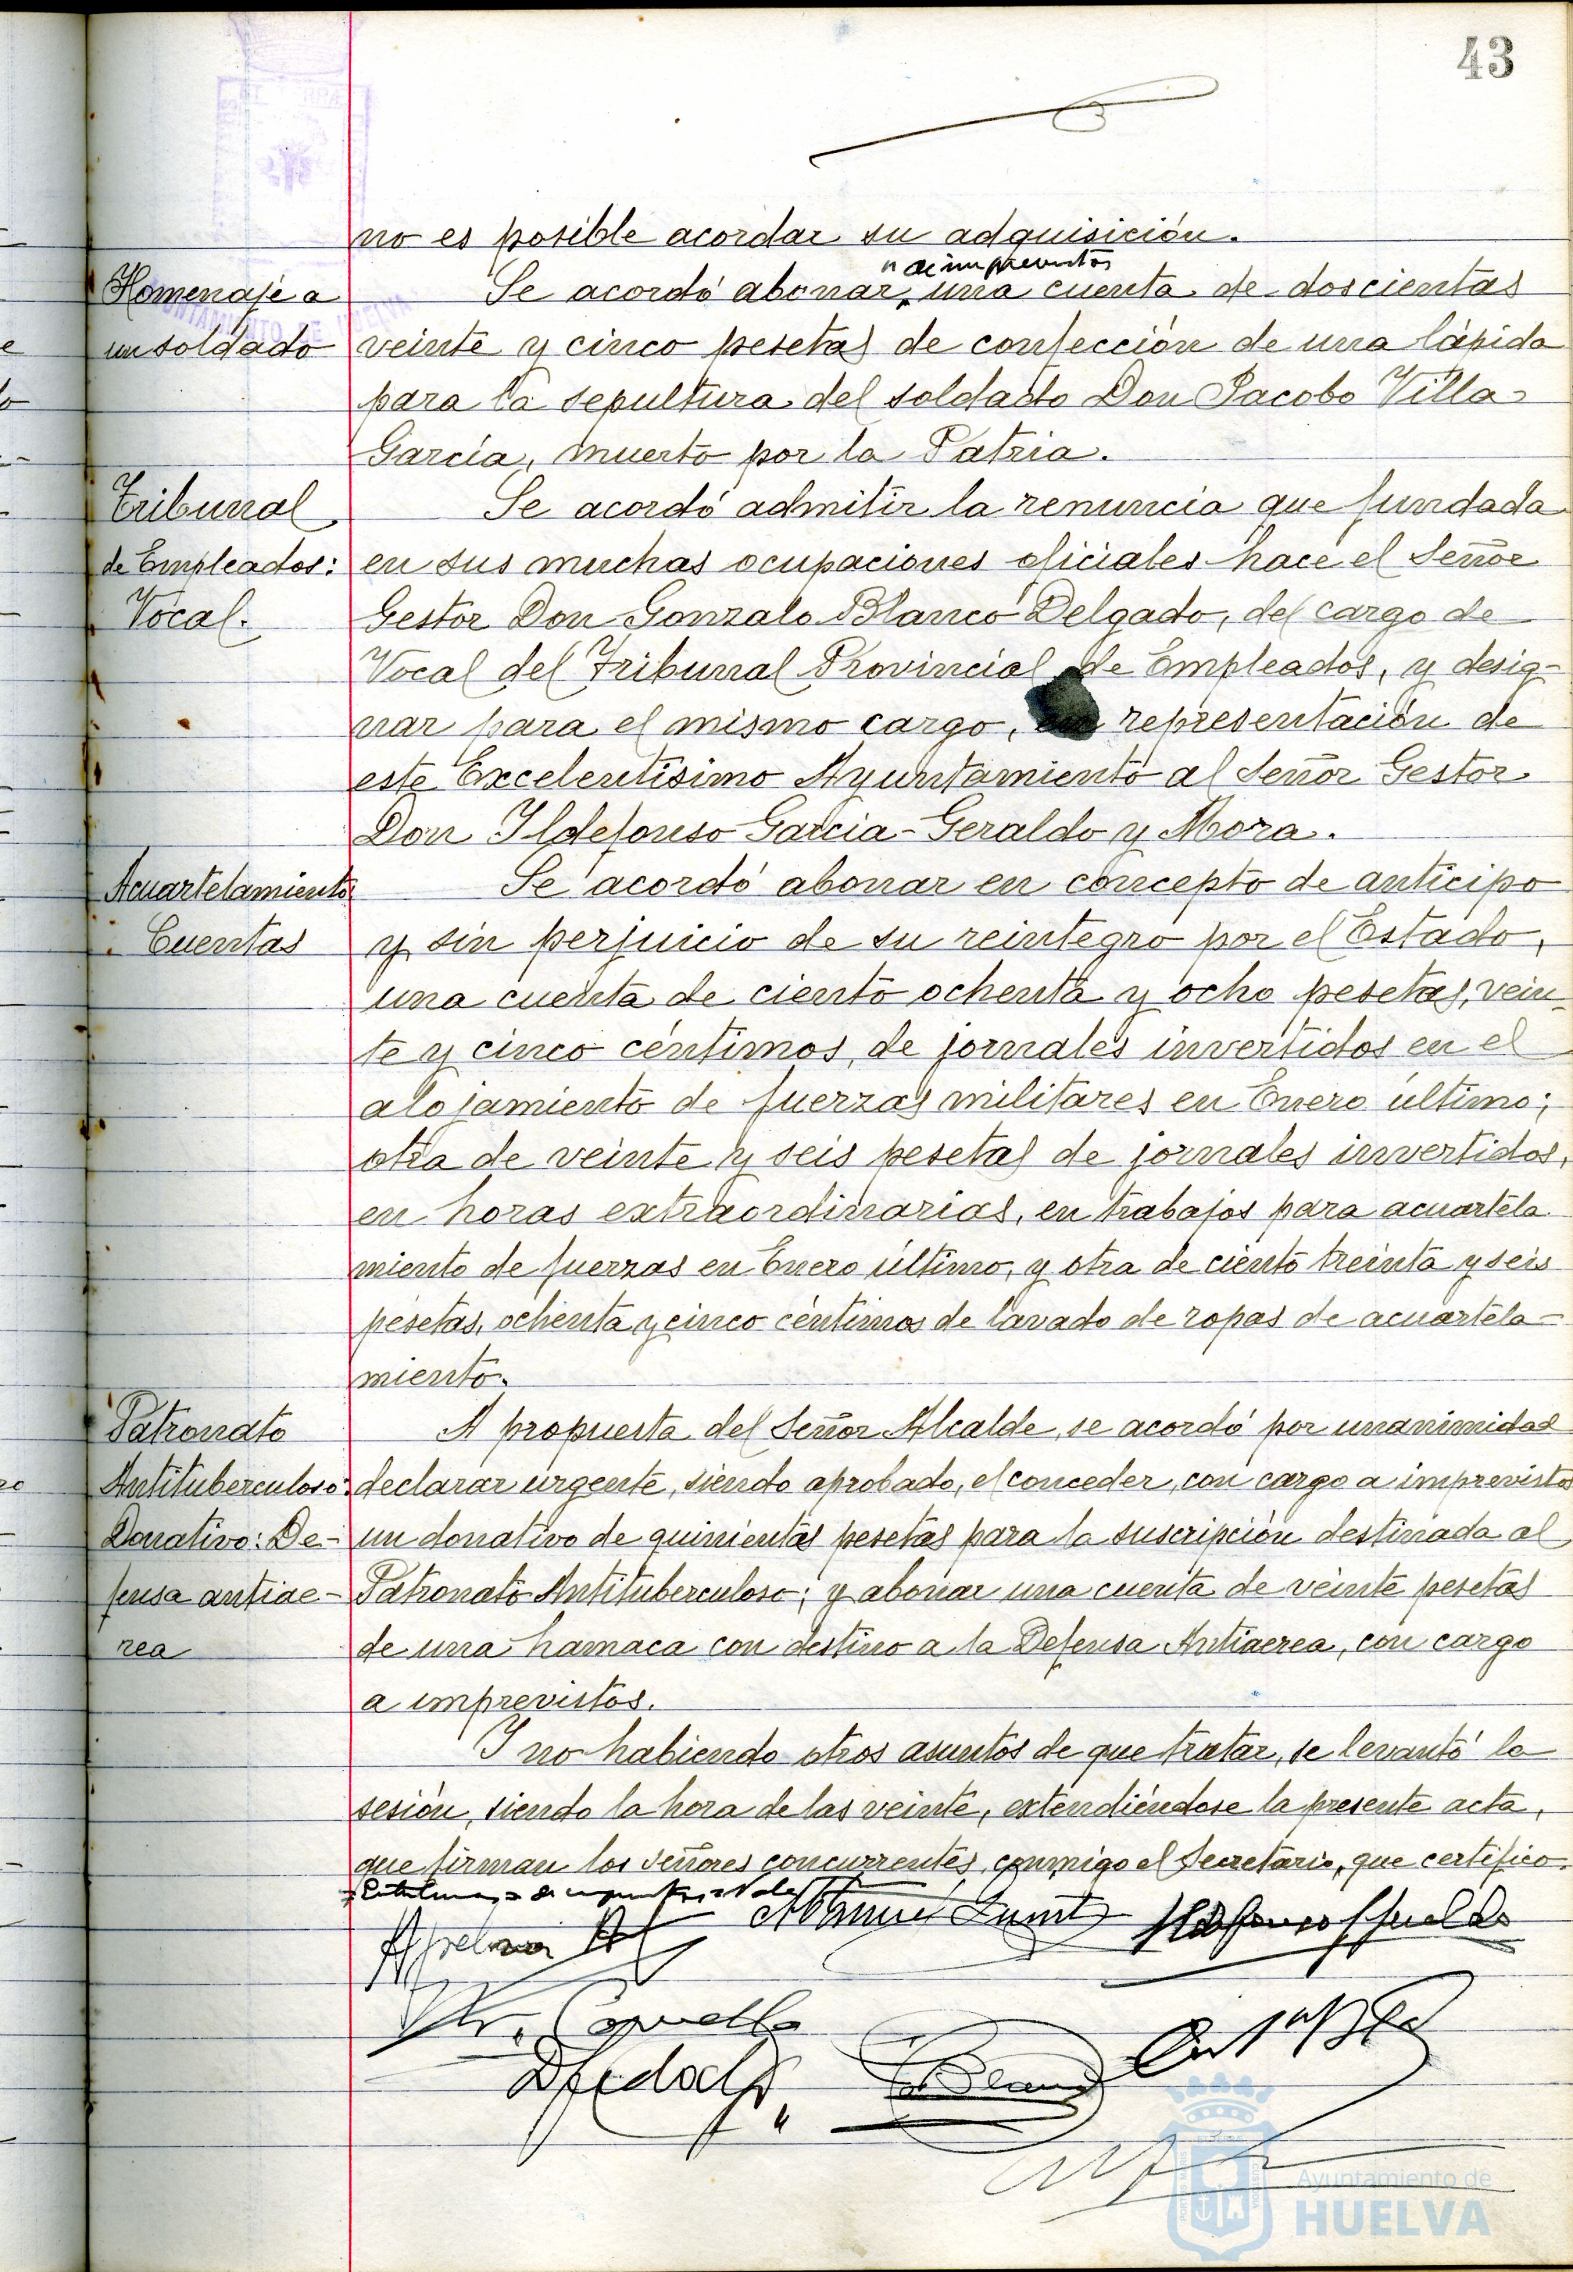 43
no es posible acordar su adquisición.
" de imprevistos
Homenaje a
un soldado
Se acordó abonar, una cuenta de doscientas
veinte y cinco pesetas de confección de una lápida
para la sepultura del soldado Don Jacobo Villa
García, muerto por la Patria.
Tribunal
de Empleados:
Vocal.
Se acordó admitir la renuncia que fundada
en sus muchas ocupaciones oficiales hace el Señor
Gestor Don Gonzalo Blanco Delgado, del cargo de
Vocal del Tribunal Provincial de Empleados, y desig-
nar para el mismo cargo, en representación de
este Excelentísimo Ayuntamiento al Señor Gestor
Don Ildefonso Garcia-Geraldo y Mora.
Acuartelamiento
Cuentas
Se acordó abonar en concepto de anticipo
y sin perjuicio de su reintegro por el Estado,
una cuenta de ciento ochenta y ocho pesetas, vein-
te y cinco céntimos, de jornales invertidos en el
alojamiento de fuerzas militares en Enero último;
otra de veinte y seis pesetas de jornales invertidos,
en horas extraordinarias, en trabajos para acuartela
miento de fuerzas en Enero último, y otra de ciento treinta y seis
pesetas, ochenta y cinco céntimos de lavado de ropas de acuartela-
miento.
Patronato
Antituberculoso:
Donativo: De-
fensa antiae-
rea
A propuesta del Señor Alcalde, se acordó por unanimidad
declarar urgente, siendo aprobado, el conceder, con cargo a imprevistos
un donativo de quinientas pesetas para la suscripción destinada al
Patronato Antituberculoso; y abonar una cuenta de veinte pesetas
de una hamaca con destino a la Defensa Antiaerea, con cargo
a imprevistos.
Y no habiendo otros asuntos de que tratar, se levantó la
sesión, siendo la hora de las veinte, extendiéndose la presente acta,
que firman los señores concurrentes, conmigo el Secretario, que certifico.
Ildefonso Gª Geraldo
Blanco
Ayuntamiento de
HUELVA